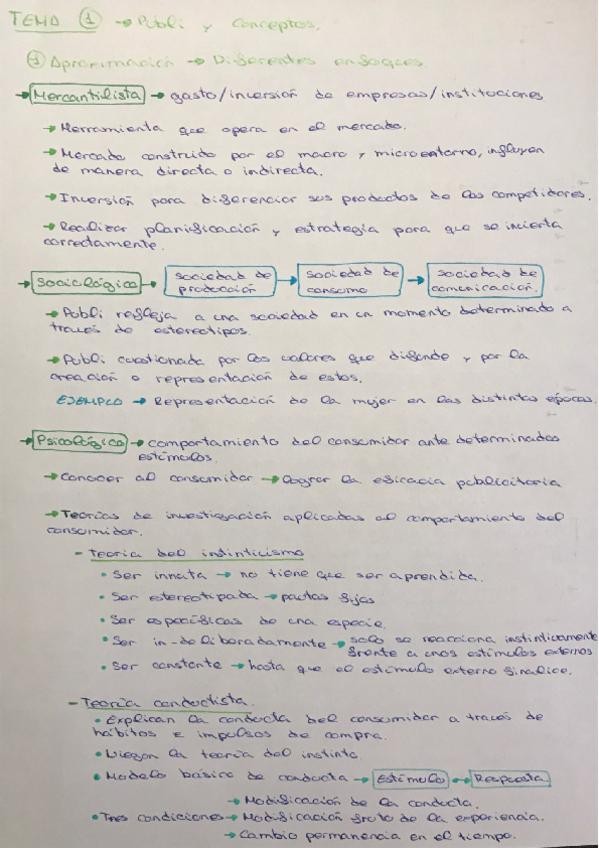 TEMA ① → Publi y Conceptos.
① Aproximación → Diferentes enfoques
→ Mercantilista → gasto/inversión de empresas/instituciones
→ Herramienta que opera en el mercado.
→ Mercado construido por el macro y microentorno, influyen
de manera directa o indirecta.
→ Inversión para diferenciar sus productos de los competidores.
→ Realizar planificación y estrategia para que se invierta
correctamente.
→ Sociológica → sociedad de producción → sociedad de consumo → sociedad de comunicación.
→ Publi refleja a una sociedad en un momento determinado a
través de estereotipos.
→ Publi cuestionada por los valores que difunde y por la
creación o representación de estos.
EJEMPLO → Representación de la mujer en las distintas épocas.
→ Psicológico → comportamiento del consumidor ante determinados
estímulos.
→ Conocer al consumidor → lograr la eficacia publicitaria
→ Teorías de investigación aplicadas al comportamiento del
consumidor.
- Teoría del instinticismo
• Ser innata → no tiene que ser aprendida.
• Ser estereotipada → pautas fijas
• Ser específicas de una especie.
• Ser in-deliberadamente → solo se reacciona instintivamente
frente a unos estímulos externos
• Ser constante → hasta que el estímulo externo finalice.
- Teoría conductista.
• Explican la conducta del consumidor a través de
hábitos e impulsos de compra.
• Niegan la teoría del instinto.
• Modelo básico de conducta → Estímulo → Respuesta
→ Modificación de la conducta.
• Tres condiciones → Modificación fruto de la experiencia.
→ Cambio permanencia en el tiempo.